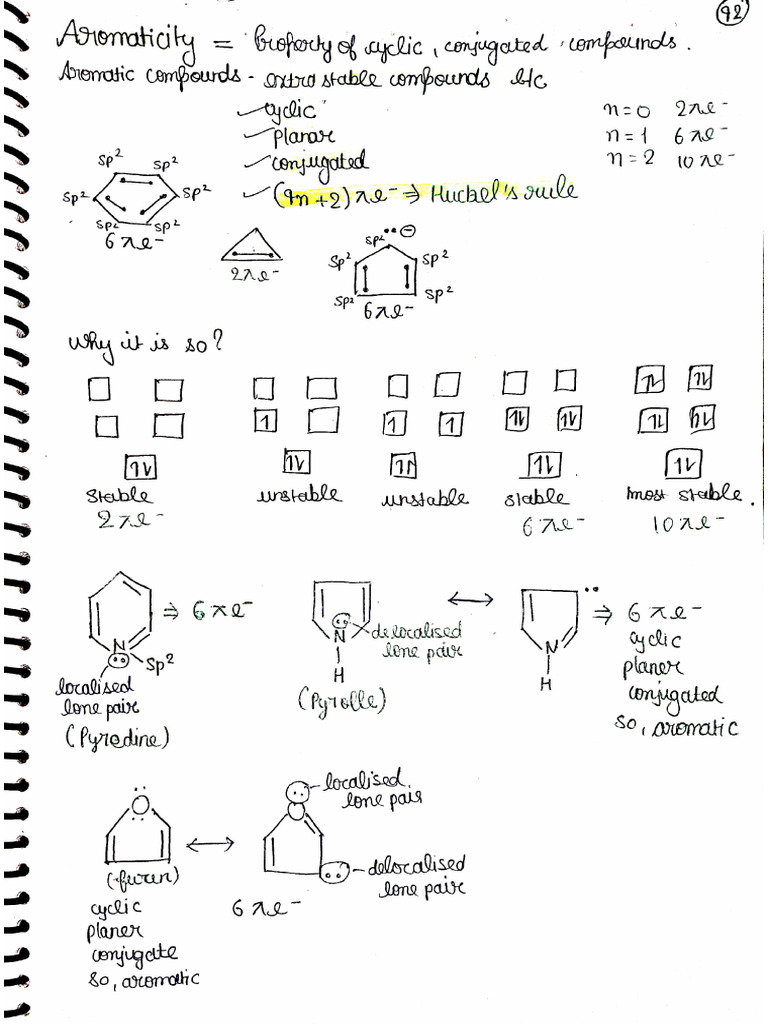 92
Aromaticity = Property of cyclic, conjugated compounds.
Aromatic compounds - extra stable compounds b/c
✓cyclic
✓planar
✓conjugated
✓(4n+2)πe- ⇒ Huckel's rule
n=0 2πe-
n=1 6πe-
n=2 10πe-
sp2 sp2
sp2 sp2
sp2 sp2
6πe-
2πe-
sp2 ⊖
sp2 sp2
sp2 sp2
6πe-
Why it is so?
1 1
1 1
1 1 1 1 1 1 1 1
1 1 1 1 1 1 1 1 1 1
stable unstable unstable stable most stable.
2πe- 6πe- 10πe-
N
Sp2
⇒ 6πe-
localised
lone pair
(Pyredine)
N
H
delocalised
lone pair
(Pyrolle)
N
H
⇒ 6πe-
cyclic
planer
conjugated
so, aromatic
O
(furan)
cyclic
planer
conjugate
so, aromatic
O
localised
lone pair
delocalised
lone pair
6πe-